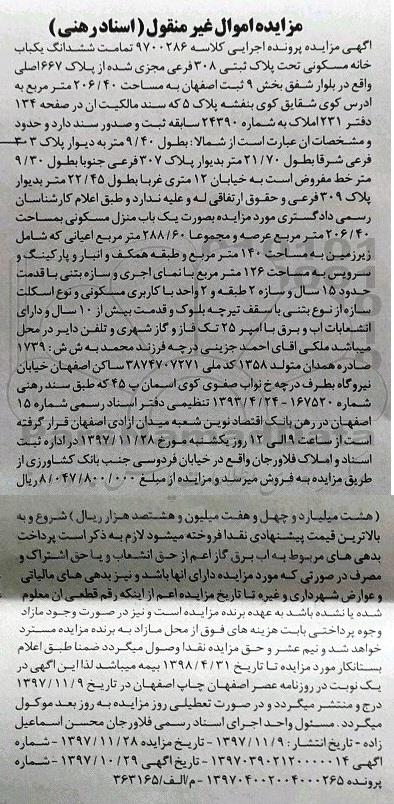 مزایده اموال غیر منقول ( اسناد رهنی )
آگهی مزایده پرونده اجرایی کلاسه ۹۷۰۰۲۸۶ تمامت ششدانگ یکباب
خانه مسکونی تحت پلاک ثبتی ۳۰۸ فرعی مجزی شده از پلاک ۶۶۷ اصلی
واقع در بلوار شفق بخش ۹ ثبت اصفهان به مساحت ۲۰۶/۴۰ متر مربع به
آدرس کوی شقایق کوی بنفشه پلاک ۵ که سند مالکیت آن در صفحه ۱۳۴
دفتر ۲۳۱ املاک به شماره ۲۴۳۹۰ سابقه ثبت و صدور سند دارد و حدود
و مشخصات آن عبارت است از شمالا : بطول ۹/۴۰ متر به دیوار پلاک ۳۰۳
فرعی شرقا بطول ۲۱/۷۰ متر بدیوار پلاک ۳۰۷ فرعی جنوبا بطول ۹/۳۰
متر خط مفروض است به خیابان ۱۲ متری غربا بطول ۲۲/۴۵ متر بدیوار
پلاک ۳۰۹ فرعی و حقوق ارتفاقی له و علیه ندارد و طبق اعلام کارشناسان
رسمی دادگستری مورد مزایده بصورت یک باب منزل مسکونی بمساحت
۲۰۶/۴۰ متر مربع عرصه و مجموعا ۲۸۸/۶۰ متر مربع اعیانی که شامل
زیرزمین به مساحت ۱۴۰ متر مربع و طبقه همکف و انبار و پارکینگ و
سرویس به مساحت ۱۲۶ متر مربع با نمای آجری و سازه بتنی با قدمت
حدود ۱۵ سال و سازه ۲ طبقه و ۲ واحد با کاربری مسکونی و نوع اسکلت
سازه از نوع بتنی با سقف تیرچه بلوک و قدمت بیش از ۱۰ سال و دارای
انشعابات آب و برق با آمپر ۲۵ تک فاز و گاز شهری و تلفن دایر در محل
میباشد ملکی آقای احمد جزینی درچه فرزند محمد به ش ش : ۱۷۳۹
صادره همدان متولد ۱۳۵۸ کد ملی ۳۸۷۴۷۰۷۲۷۱ ساکن اصفهان خیابان
نیروگاه بطرف درچه خ نواب صفوی کوی اسمان پ ۴۵ که طبق سند رهنی
شماره ۱۶۷۵۲۰ - ۱۳۹۳/۴/۲۴ تنظیمی دفتر اسناد رسمی شماره ۱۵
اصفهان در رهن بانک اقتصاد نوین شعبه میدان آزادی اصفهان قرار گرفته
است از ساعت ۹ الی ۱۲ روز یکشنبه مورخ ۱۳۹۷/۱۱/۲۸ در اداره ثبت
اسناد و املاک فلاورجان واقع در خیابان فردوسی جنب بانک کشاورزی از
طریق مزایده به فروش میرسد و مزایده از مبلغ ۸/۰۴۷/۸۰۰/۰۰۰ ریال
( هشت میلیارد و چهل و هفت میلیون و هشتصد هزار ریال ) شروع و به
بالاترین قیمت پیشنهادی نقدا فروخته میشود لازم به ذکر است پرداخت
بدهی های مربوط به آب برق گاز اعم از حق انشعاب و یا حق اشتراک و
مصرف در صورتی که مورد مزایده دارای آنها باشد و نیز بدهی های مالیاتی
و عوارض شهرداری و غیره تا تاریخ مزایده اعم از اینکه رقم قطعی آن معلوم
شده یا نشده باشد به عهده برنده مزایده است و نیز در صورت وجود مازاد
وجوه پرداختی بابت هزینه های فوق از محل مازاد به برنده مزایده مسترد
خواهد شد و نیم عشر و حق مزایده نقدا وصول میگردد ضمنا طبق اعلام
بستانکار مورد مزایده تا تاریخ ۱۳۹۸/۴/۳۱ بیمه میباشد لذا این آگهی در
یک نوبت در روزنامه عصر اصفهان چاپ اصفهان در تاریخ ۱۳۹۷/۱۱/۹
درج و منتشر میگردد و در صورت تعطیلی روز مزایده به روز بعد موکول
میگردد . مسئول واحد اجرای اسناد رسمی فلاورجان محسن اسماعیل
زاده - تاریخ انتشار : ۱۳۹۷/۱۱/۹ - تاریخ مزایده ۱۳۹۷/۱۱/۲۸ - شماره
آگهی ۱۳۹۷۰۳۹۰۲۱۲۰۰۰۰۱۴ - تاریخ آگهی ۱۳۹۷/۱۰/۲۹ - شماره
پرونده ۱۳۹۷۰۴۰۰۲۰۰۴۰۰۰۲۶۵ - م/الف/۳۶۳۱۶۵